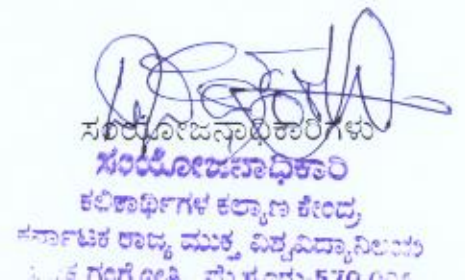 ಸಂಯೋಜನಾಧಿಕಾರಿಗಳು
ಸಂಯೋಜನಾಧಿಕಾರಿ
ಕಲಿಕಾರ್ಥಿಗಳ ಕಲ್ಯಾಣ ಕೇಂದ್ರ,
ಕರ್ನಾಟಕ ರಾಜ್ಯ ಮುಕ್ತ ವಿಶ್ವವಿದ್ಯಾನಿಲಯ
ಗಂಗೋತ್ರಿ,